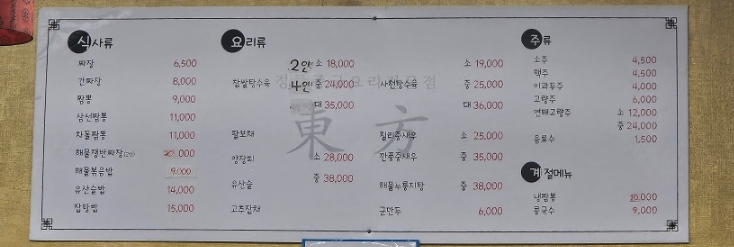 식사류
짜장 6,500
간짜장 8,000
짬뽕 9,000
삼선짬뽕 11,000
차돌짬뽕 11,000
해물쟁반짜장(2인) 20,000
해물볶음밥 9,000
유산슬밥 14,000
잡탕밥 15,000
요리류
찹쌀탕수육
2인 소 18,000
4인 중 24,000
대 35,000
팔보채
양장피
유산슬
고추잡채
소 28,000
중 38,000
東方
사천탕수육
소 19,000
중 25,000
대 36,000
칠리중새우
깐풍중새우
소 25,000
중 35,000
해물누룽지탕 중 38,000
군만두 6,000
주류
소주 4,500
맥주 4,500
이과두주 4,000
고량주 6,000
연태고량주 소 12,000
중 24,000
음료수 1,500
계절메뉴
냉짬뽕
콩국수 9,000